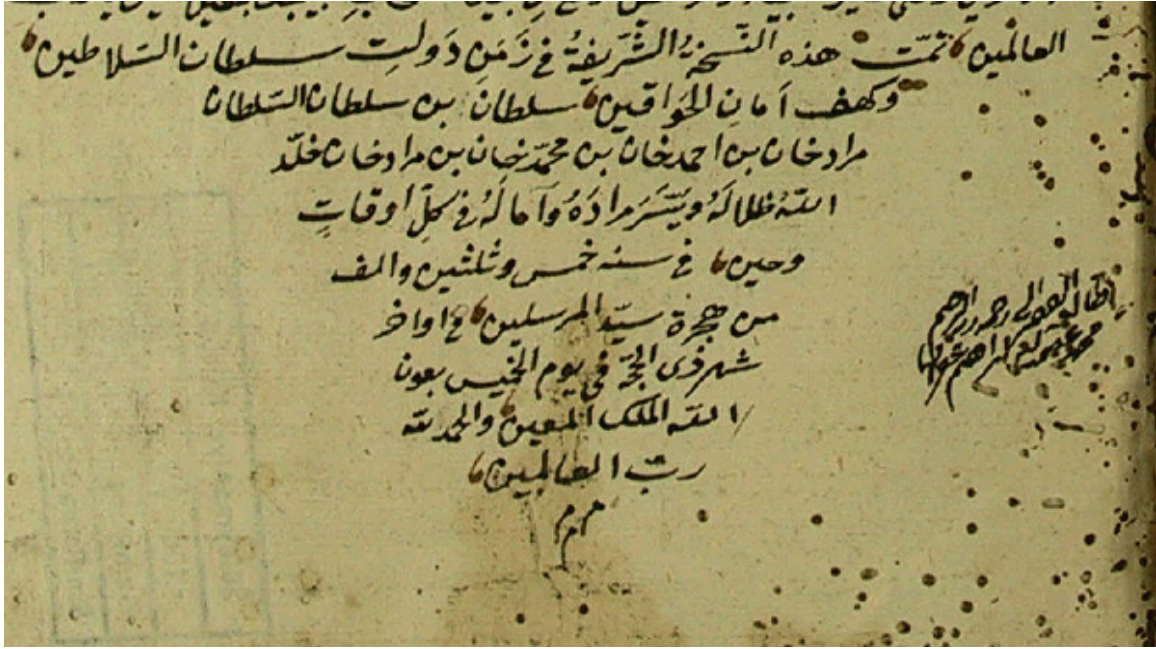 العالمين تمّت هذه النّسخةُ الشّريفةُ في زَمَنِ دَولتِ سلطان السّلاطين
وكهف اَمانِ الخَواقين سلطان بن سلطان السّلطان
مرادخان بن احمدخان بن محمّدخان بن مرادخان خلّد
اللّهُ ظلالَهُ ويَسَّرَ مرادَهُ وآمالَهُ في كلّ اوقاتٍ
وحين في سنه خمس وثلثين والف
من هجرة سيّد المرسلين في اواخر
شهر ذى الحجّة في يوم الخميس بعون
اللّه الملك المعين والحمد للّه
ربّ العالمين
م م م